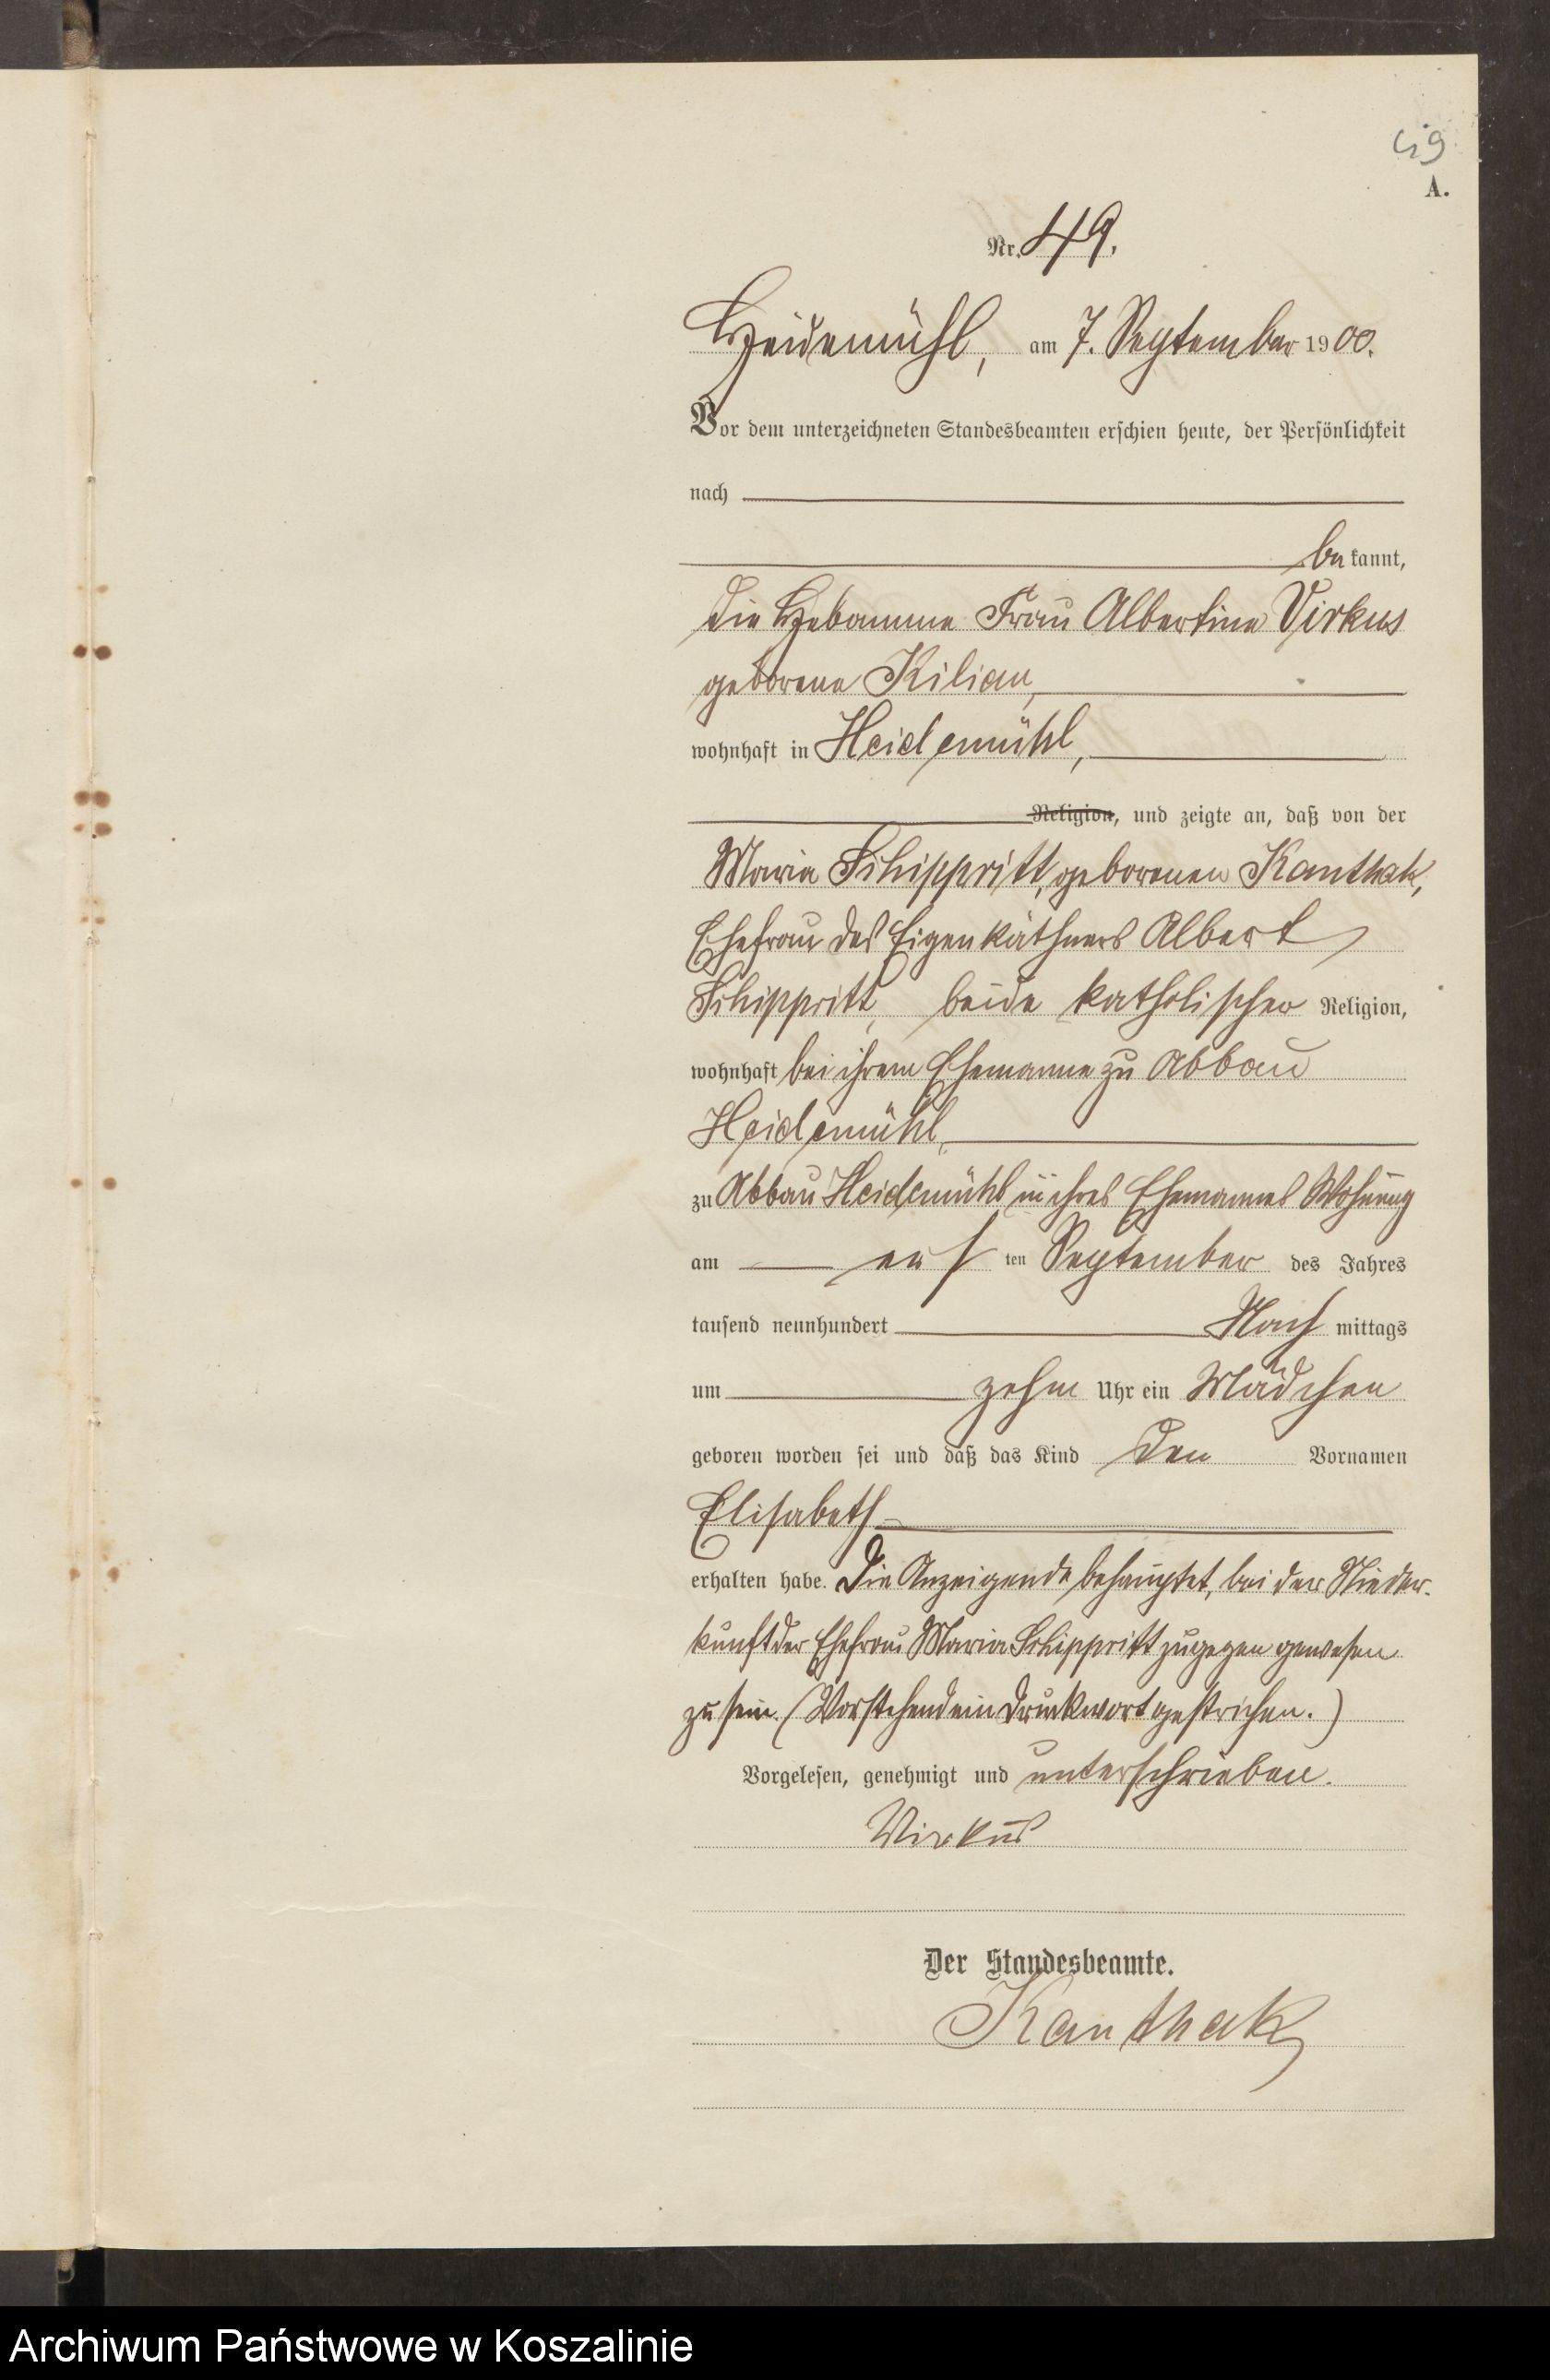 49
A.
Nr. 49.
Heidemühl, am 7. September 1900.
Vor dem unterzeichneten Standesbeamten erschien heute, der Persönlichkeit
nach
bekannt,
die Hebamme Frau Albertine Virkus
geborene Kilian,
wohnhaft in Heidemühl,
Religion, und zeigte an, daß von der
Maria Schippritt, geborenen Kanthak,
Ehefrau des Eigenkäthners Albert
Schippritt, beide katholischer Religion,
wohnhaft bei ihrem Ehemanne zu Abbau
Heidemühl,
zu Abbau Heidemühl in ihres Ehemannes Wohnung
am ten September des Jahres
tausend neunhundert Nachmittags
um zehn Uhr ein Mädchen
geboren worden sei und daß das Kind den Vornamen
Elisabeth
erhalten habe. Die Anzeigende behauptet, bei der Nieder-
kunft der Ehefrau Maria Schippritt zugegen gewesen
zu sein. (Vorstehend ein Druckwort gestrichen.)
Vorgelesen, genehmigt und unterschrieben.
Wirkus
Der Standesbeamte.
Kanthak
Archiwum Państwowe w Koszalinie